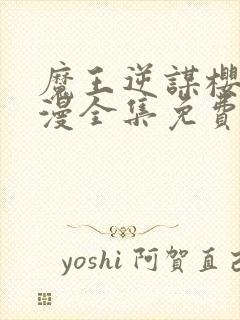 魔王逆謀櫻
漫全集免費
yoshi 阿賀直己